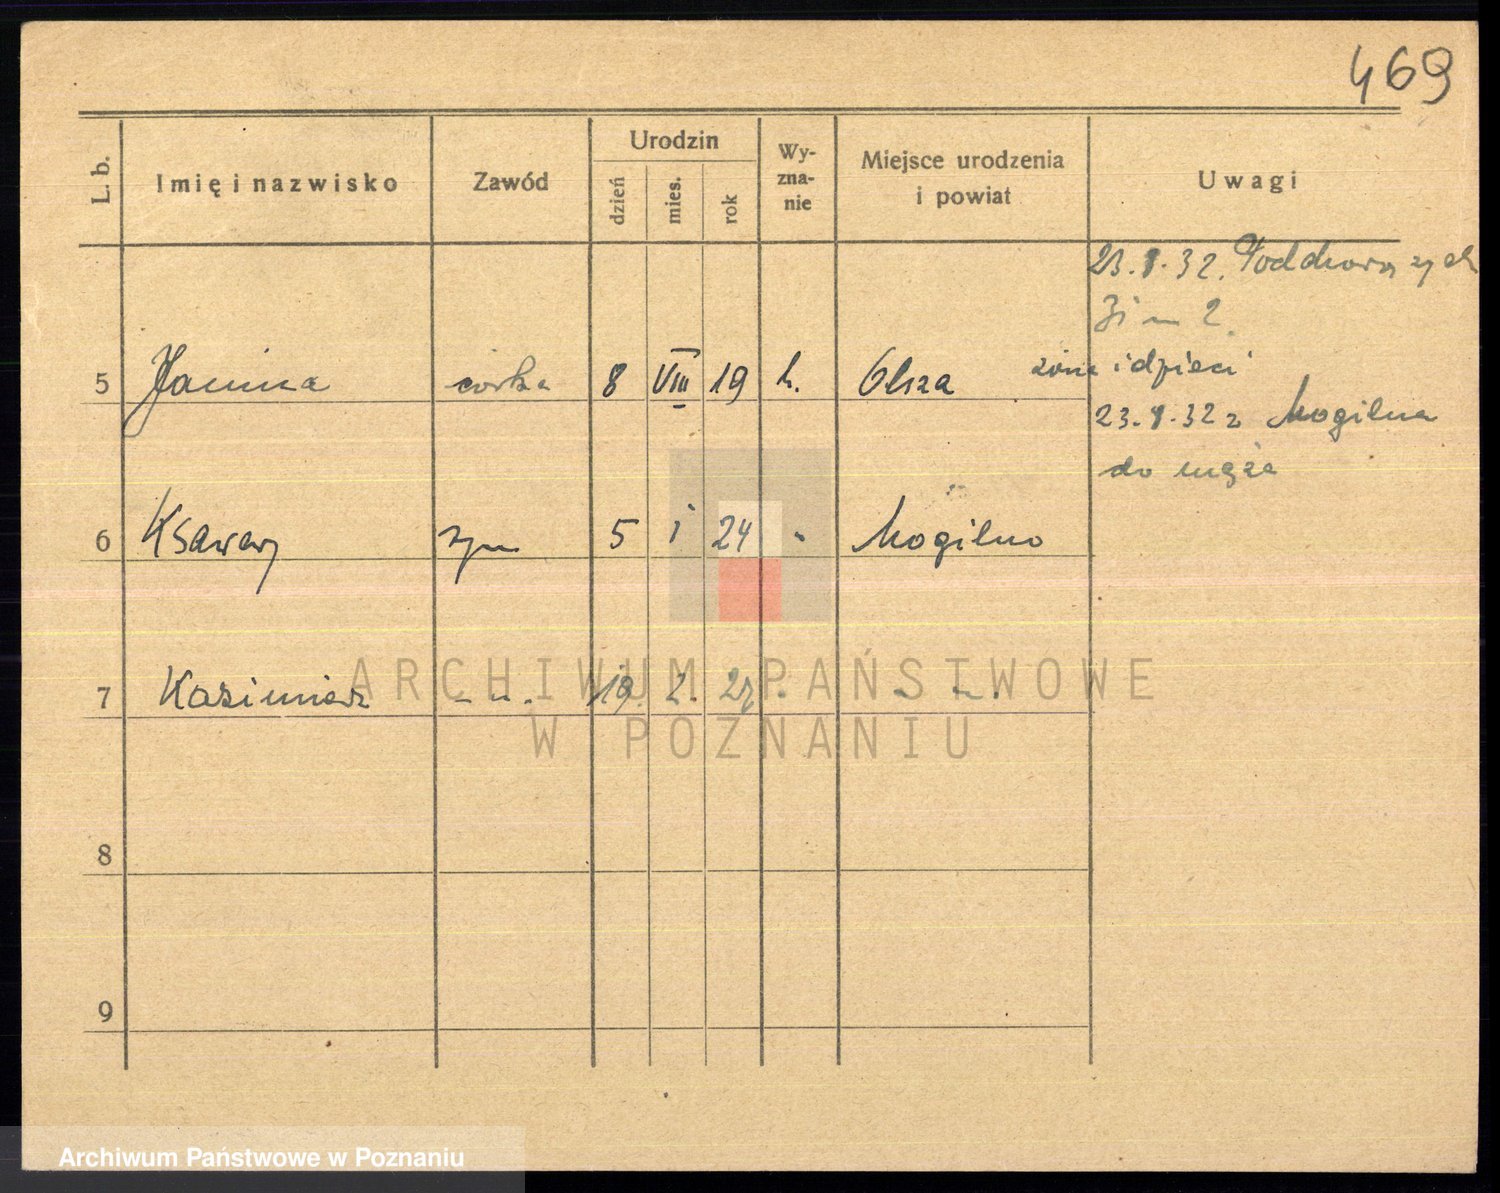 469
L. b. Imię i nazwisko Zawód Urodzin dzień mies. rok Wy-zna-nie Miejsce urodzenia i powiat Uwagi
23.8.32.
m 2.
5 Janina córka 8 VIII 19 k. Olsza
żona i dzieci
23.8.32 z Mogilna
do męża
6 Ksawery syn 5 I 24 " Mogilno
7 Kazimierz - " - 19. 2. 27 " - " -
8
9
ARCHIWUM PAŃSTWOWE
W POZNANIU
Archiwum Państwowe w Poznaniu